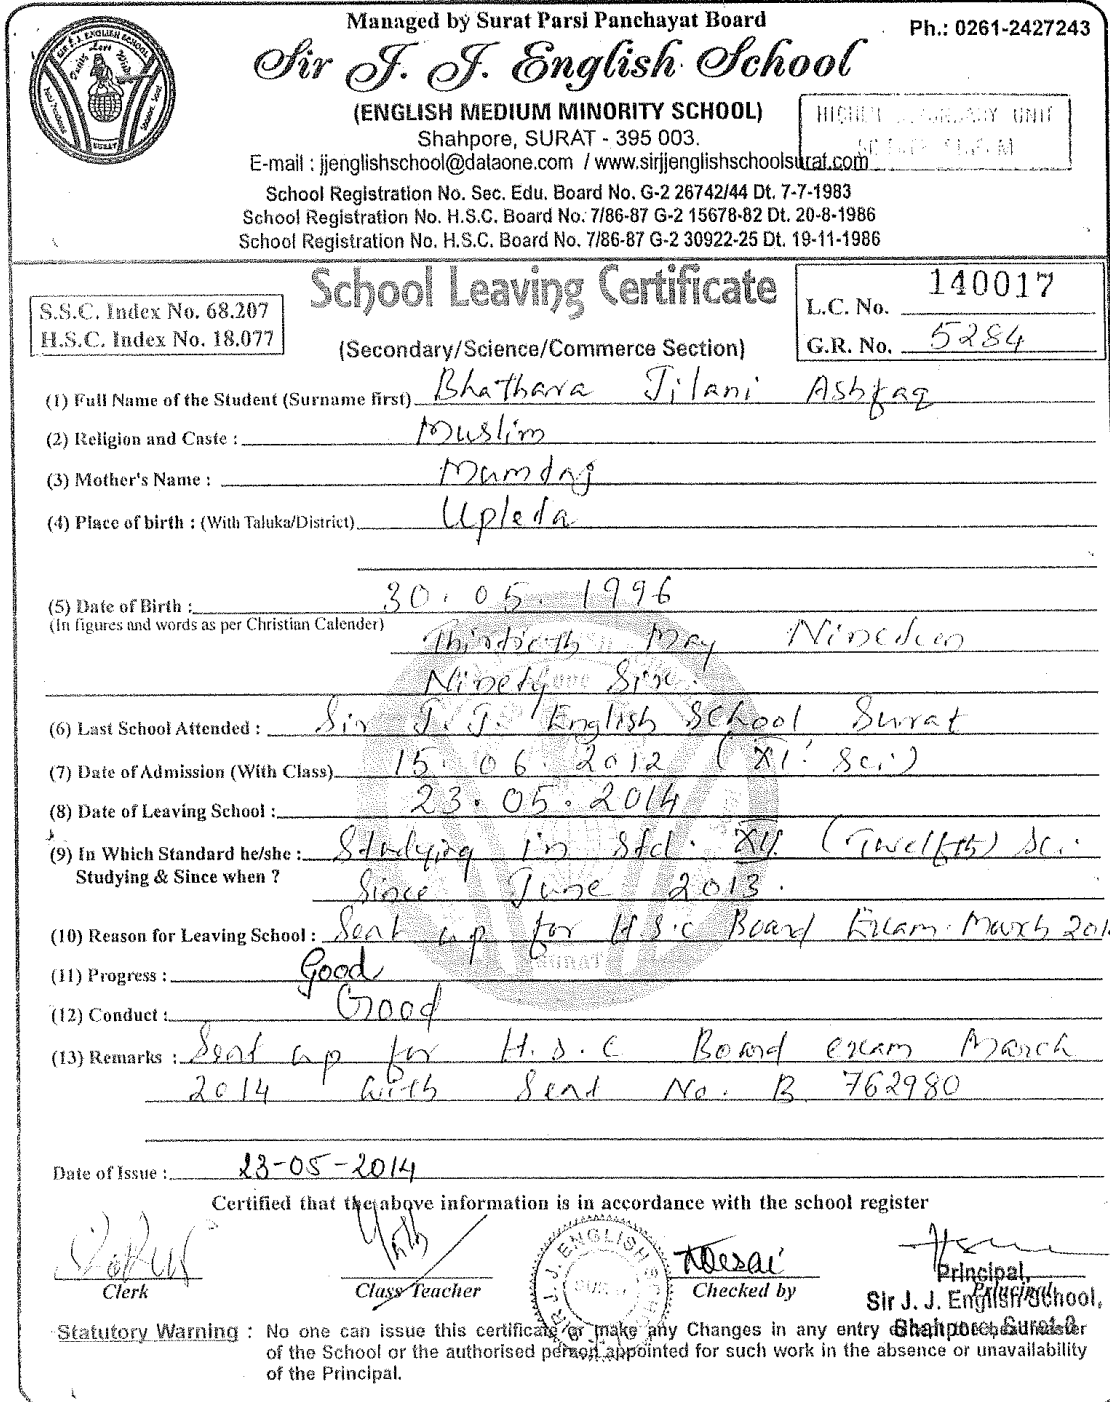 Managed by Surat Parsi Panchayat Board
Ph.: 0261-2427243
Sir J. J. English School
(ENGLISH MEDIUM MINORITY SCHOOL)
Shahpore, SURAT - 395 003.
E-mail : jjenglishschool@dataone.com / www.sirjjenglishschoolsurat.com
School Registration No. Sec. Edu. Board No. G-2 26742/44 Dt. 7-7-1983
School Registration No. H.S.C. Board No. 7/86-87 G-2 15678-82 Dt. 20-8-1986
School Registration No. H.S.C. Board No. 7/86-87 G-2 30922-25 Dt. 19-11-1986
School Leaving Certificate
S.S.C. Index No. 68.207
H.S.C. Index No. 18.077
(Secondary/Science/Commerce Section)
L.C. No. 140017
G.R. No. 5284
(1) Full Name of the Student (Surname first) Bhathara Jilani Ashfaq
(2) Religion and Caste : Muslim
(3) Mother's Name : Mumtaj
(4) Place of birth : (With Taluka/District) Upleta
(5) Date of Birth : 30.05.1996
(In figures and words as per Christian Calender) Thirtieth May Nineteen
Ninety Six.
(6) Last School Attended : Sir J.J. English School Surat
(7) Date of Admission (With Class) 15.06.2012 (XI. Sci.)
(8) Date of Leaving School : 23.05.2014
(9) In Which Standard he/she : Studying in Std. XII (Twelfth) Sci.
Studying & Since when ? Since June 2013.
(10) Reason for Leaving School : Sent up for H.S.C Board Exam. March 201
(11) Progress : Good
(12) Conduct : Good
(13) Remarks : Sent up for H.S.C Board exam March
2014 with Seat No. B 762980
Date of Issue : 23-05-2014
Certified that the above information is in accordance with the school register
Clerk
Class Teacher
Desai
Checked by
Principal
Principal,
Sir J. J. English School,
Shahpore, Surat-3
SIR J. J. ENGLISH SCHOOL
Statutory Warning : No one can issue this certificate or make any Changes in any entry
of the School or the authorised person appointed for such work in the absence or unavailability
of the Principal.